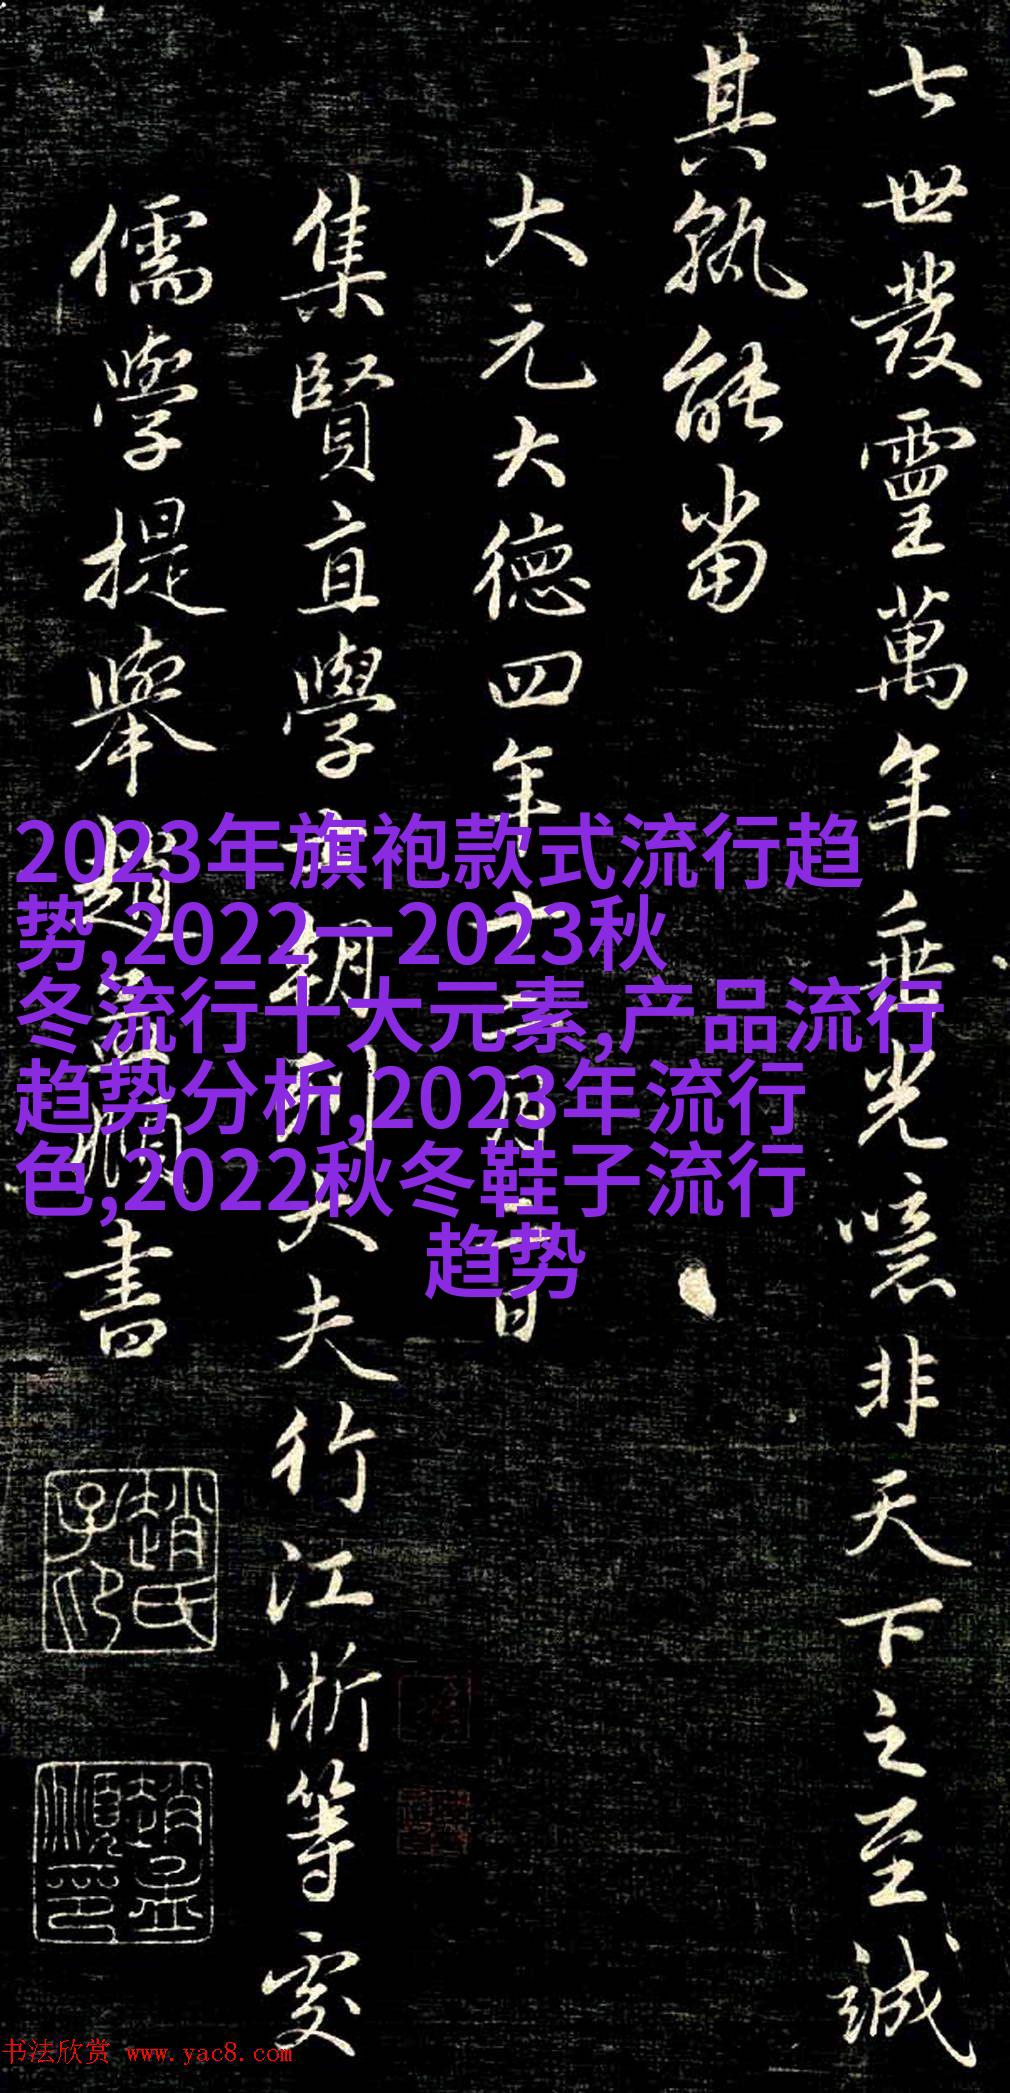 七世發靈萬年垂光噫非天下之至誠
其孰能當
大元大德四年
集賢直學士朝列大夫行江浙等處
儒學提舉趙孟頫書
趙氏子印
趙孟頫印
2023年旗袍款式流行趋
势,2022一2023秋
冬流行十大元素,产品流行
趋势分析,2023年流行
色,2022秋冬鞋子流行
趋势
书法欣赏 www.yac8.com